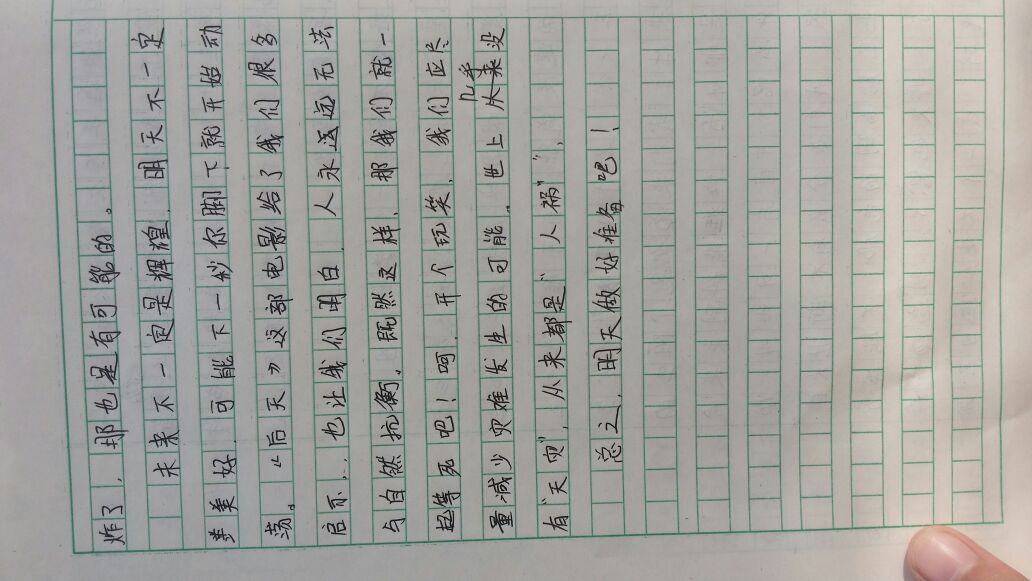 炸了，那也是有可能的。
未来不一定是辉煌，明天不一定
美美好，可能下一秒你脚下就开始动
荡。《后天》这部电影给了我们很多
启示，也让我们明白，人永远远无法
与自然抗衡。既然这样，那我们就一
起等死吧！呵，开个玩笑，我们应尽
量减少灾难发生的可能。世上几乎从来没
有"天灾"，从来都是"人祸"，
总之，明天做好准备吧！